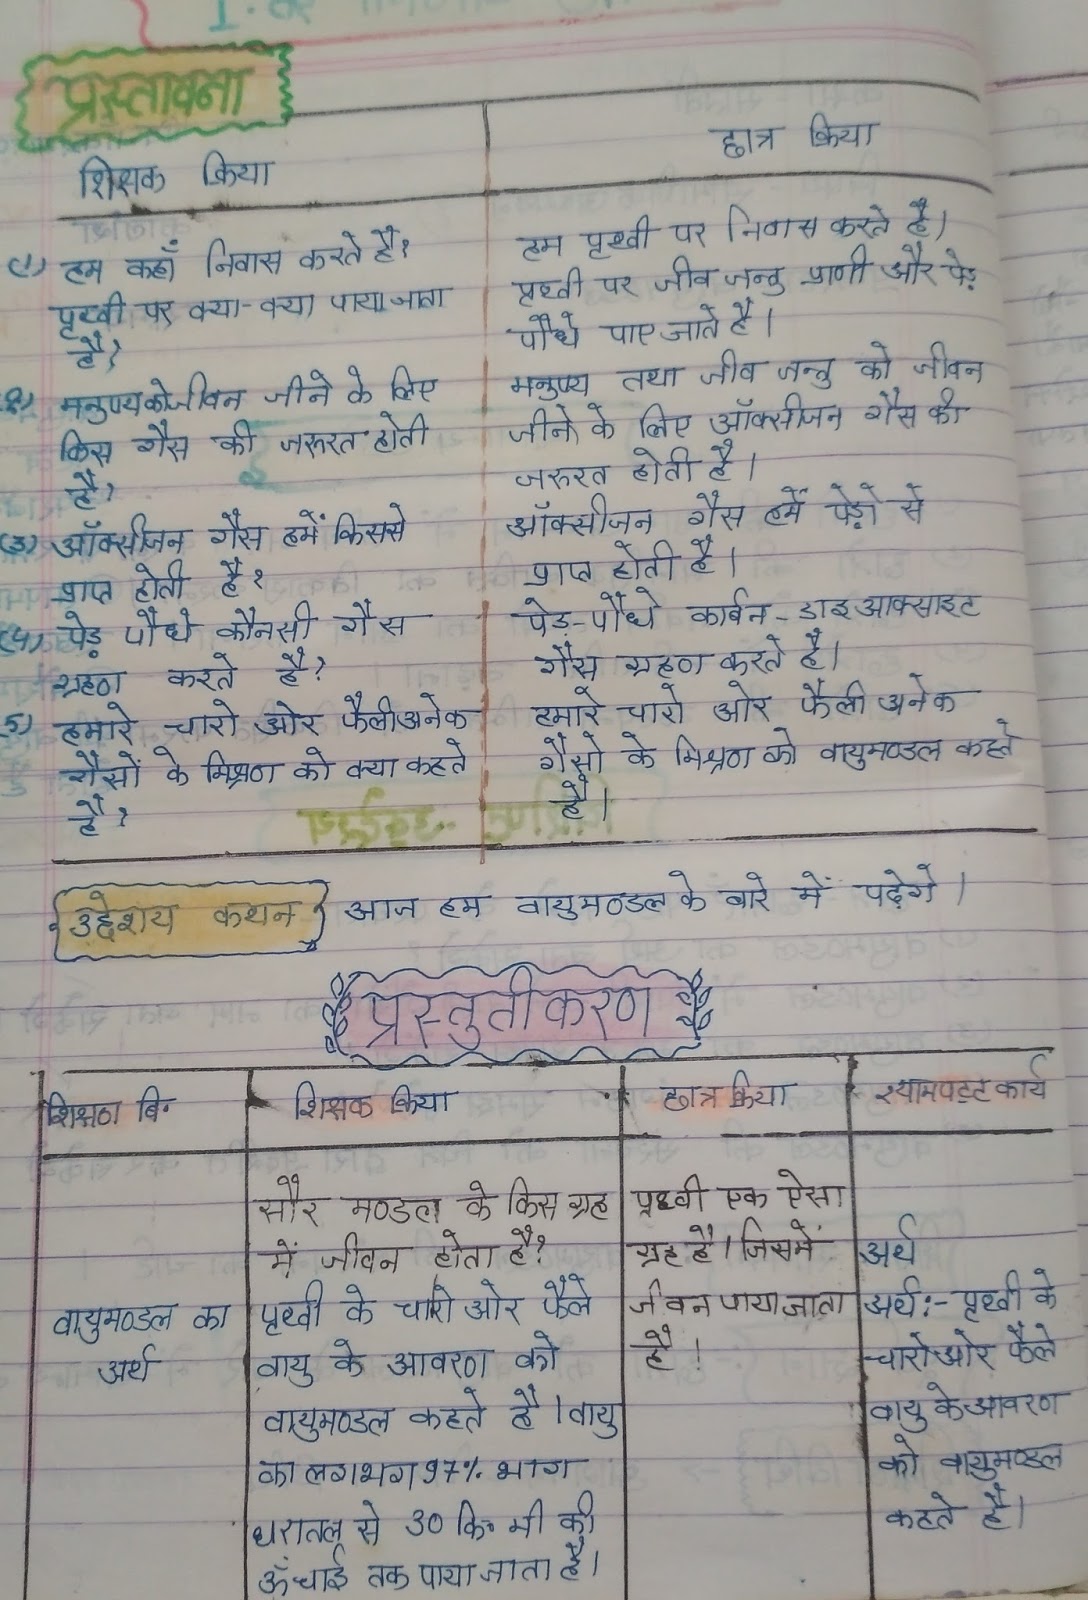 प्रस्तावना
शिक्षक क्रिया
छात्र क्रिया
(1) हम कहाँ निवास करते है?
पृथ्वी पर क्या-क्या पाया जाता
है?
(2) मनुष्य को जीवन जीने के लिए
किस गैस की जरूरत होती
है?
(3) ऑक्सीजन गैस हमें किससे
प्राप्त होती है?
(4) पेड़ पौधे कौनसी गैस
ग्रहण करते है?
5) हमारे चारो ओर फैली अनेक
गैसों के मिश्रण को क्या कहते
है?
हम पृथ्वी पर निवास करते है।
पृथ्वी पर जीव जन्तु प्राणी और पेड़
पौधे पाए जाते है।
मनुष्य तथा जीव जन्तु को जीवन
जीने के लिए ऑक्सीजन गैस की
जरूरत होती है।
ऑक्सीजन गैस हमें पेड़ो से
प्राप्त होती है।
पेड़-पौधे कार्बन-डाइआक्साइट
गैस ग्रहण करते है।
हमारे चारो ओर फैली अनेक
गैसो के मिश्रण को वायुमण्डल कहते
है।
उद्देशय कथन आज हम वायुमण्डल के बारे में पढ़ेगे।
प्रस्तुतीकरण
शिक्षण बि॰
शिक्षक क्रिया
छात्र क्रिया
श्यामपट्ट कार्य
वायुमण्डल का
अर्थ
सौर मण्डल के किस ग्रह
में जीवन होता है?
पृथ्वी के चारो ओर फैले
वायु के आवरण को
वायुमण्डल कहते है। वायु
का लगभग 97% भाग
धरातल से 30 कि॰ मी की
ऊँचाई तक पाया जाता है।
पृथ्वी एक ऐसा
ग्रह है। जिसमें
जीवन पाया जाता
है।
अर्थ
अर्थ:- पृथ्वी के
चारो ओर फैले
वायु के आवरण
को वायुमण्डल
कहते है।